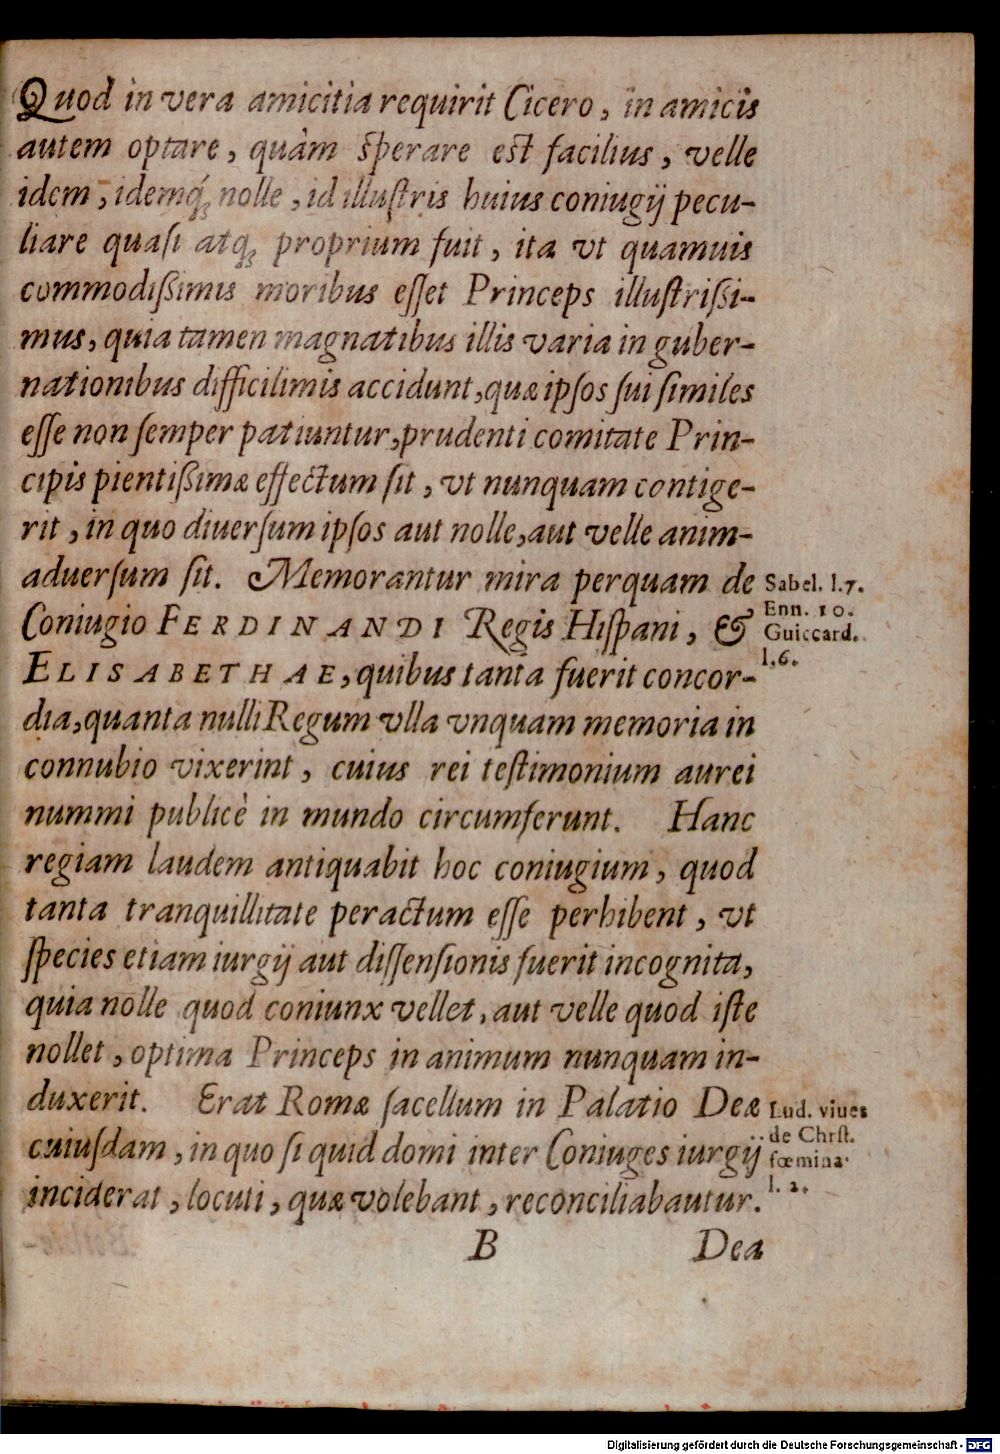 Quod in vera amicitia requirit Cicero, in amicis
autem optare, quàm sperare est facilius, velle
idem, idemq́; nolle, id illustris huius coniugij pecu-
liare quasi atq; proprium fuit, ita vt quamuis
commodißimis moribus esset Princeps illustrißi-
mus, quia tamen magnatibus illis varia in guber-
nationibus difficilimis accidunt, quæ ipsos sui similes
esse non semper patiuntur, prudenti comitate Prin-
cipis pientißimæ effectum sit, vt nunquam contige-
rit, in quo diuersum ipsos aut nolle, aut velle anim-
aduersum sit. Memorantur mira perquam de
Coniugio FERDINANDI Regis Hispani, &
ELISABETHAE, quibus tanta fuerit concor-
dia, quanta nulli Regum vlla vnquam memoria in
connubio vixerint, cuius rei testimonium aurei
nummi publicè in mundo circumferunt. Hanc
regiam laudem antiquabit hoc coniugium, quod
tanta tranquillitate peractum esse perhibent, vt
species etiam iurgij aut dissensionis fuerit incognita,
quia nolle quod coniunx vellet, aut velle quod iste
nollet, optima Princeps in animum nunquam in-
duxerit. Erat Romæ sacellum in Palatio Deæ
cuiusdam, in quo si quid domi inter Coniuges iurgij
inciderat, locuti, quæ volebant, reconciliabautur.
B Dea
Sabel. l.7.
Enn. 10.
Guiccard.
l.6.
Lud. viues
de Chrst.
fœmina.
l. 2.
Digitalisierung gefördert durch die Deutsche Forschungsgemeinschaft - DFG